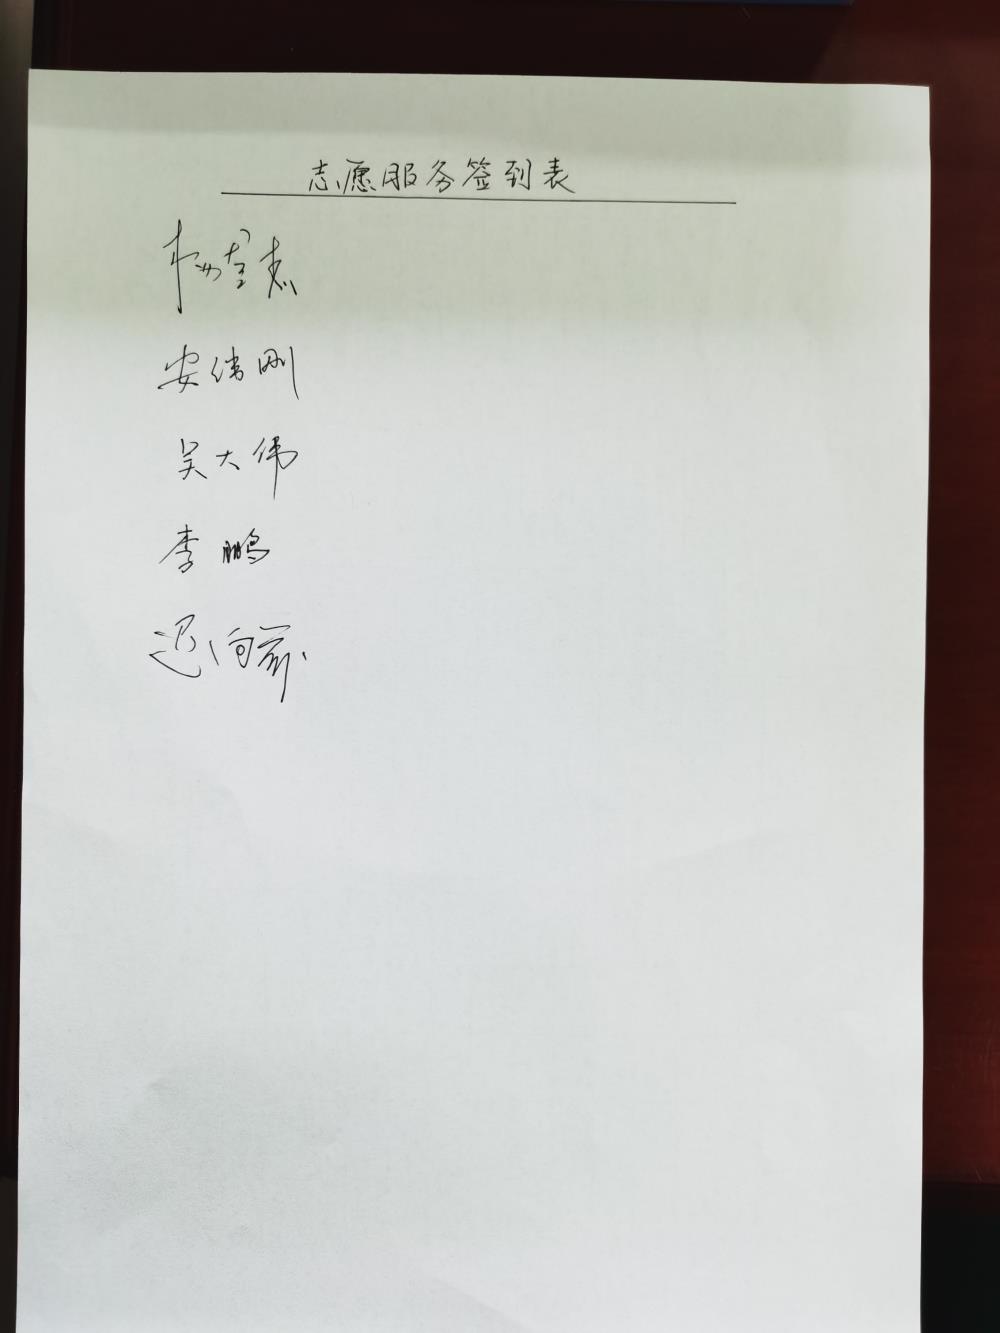 志愿服务签到表
志
安伟刚
吴大伟
李鹏
迟向前